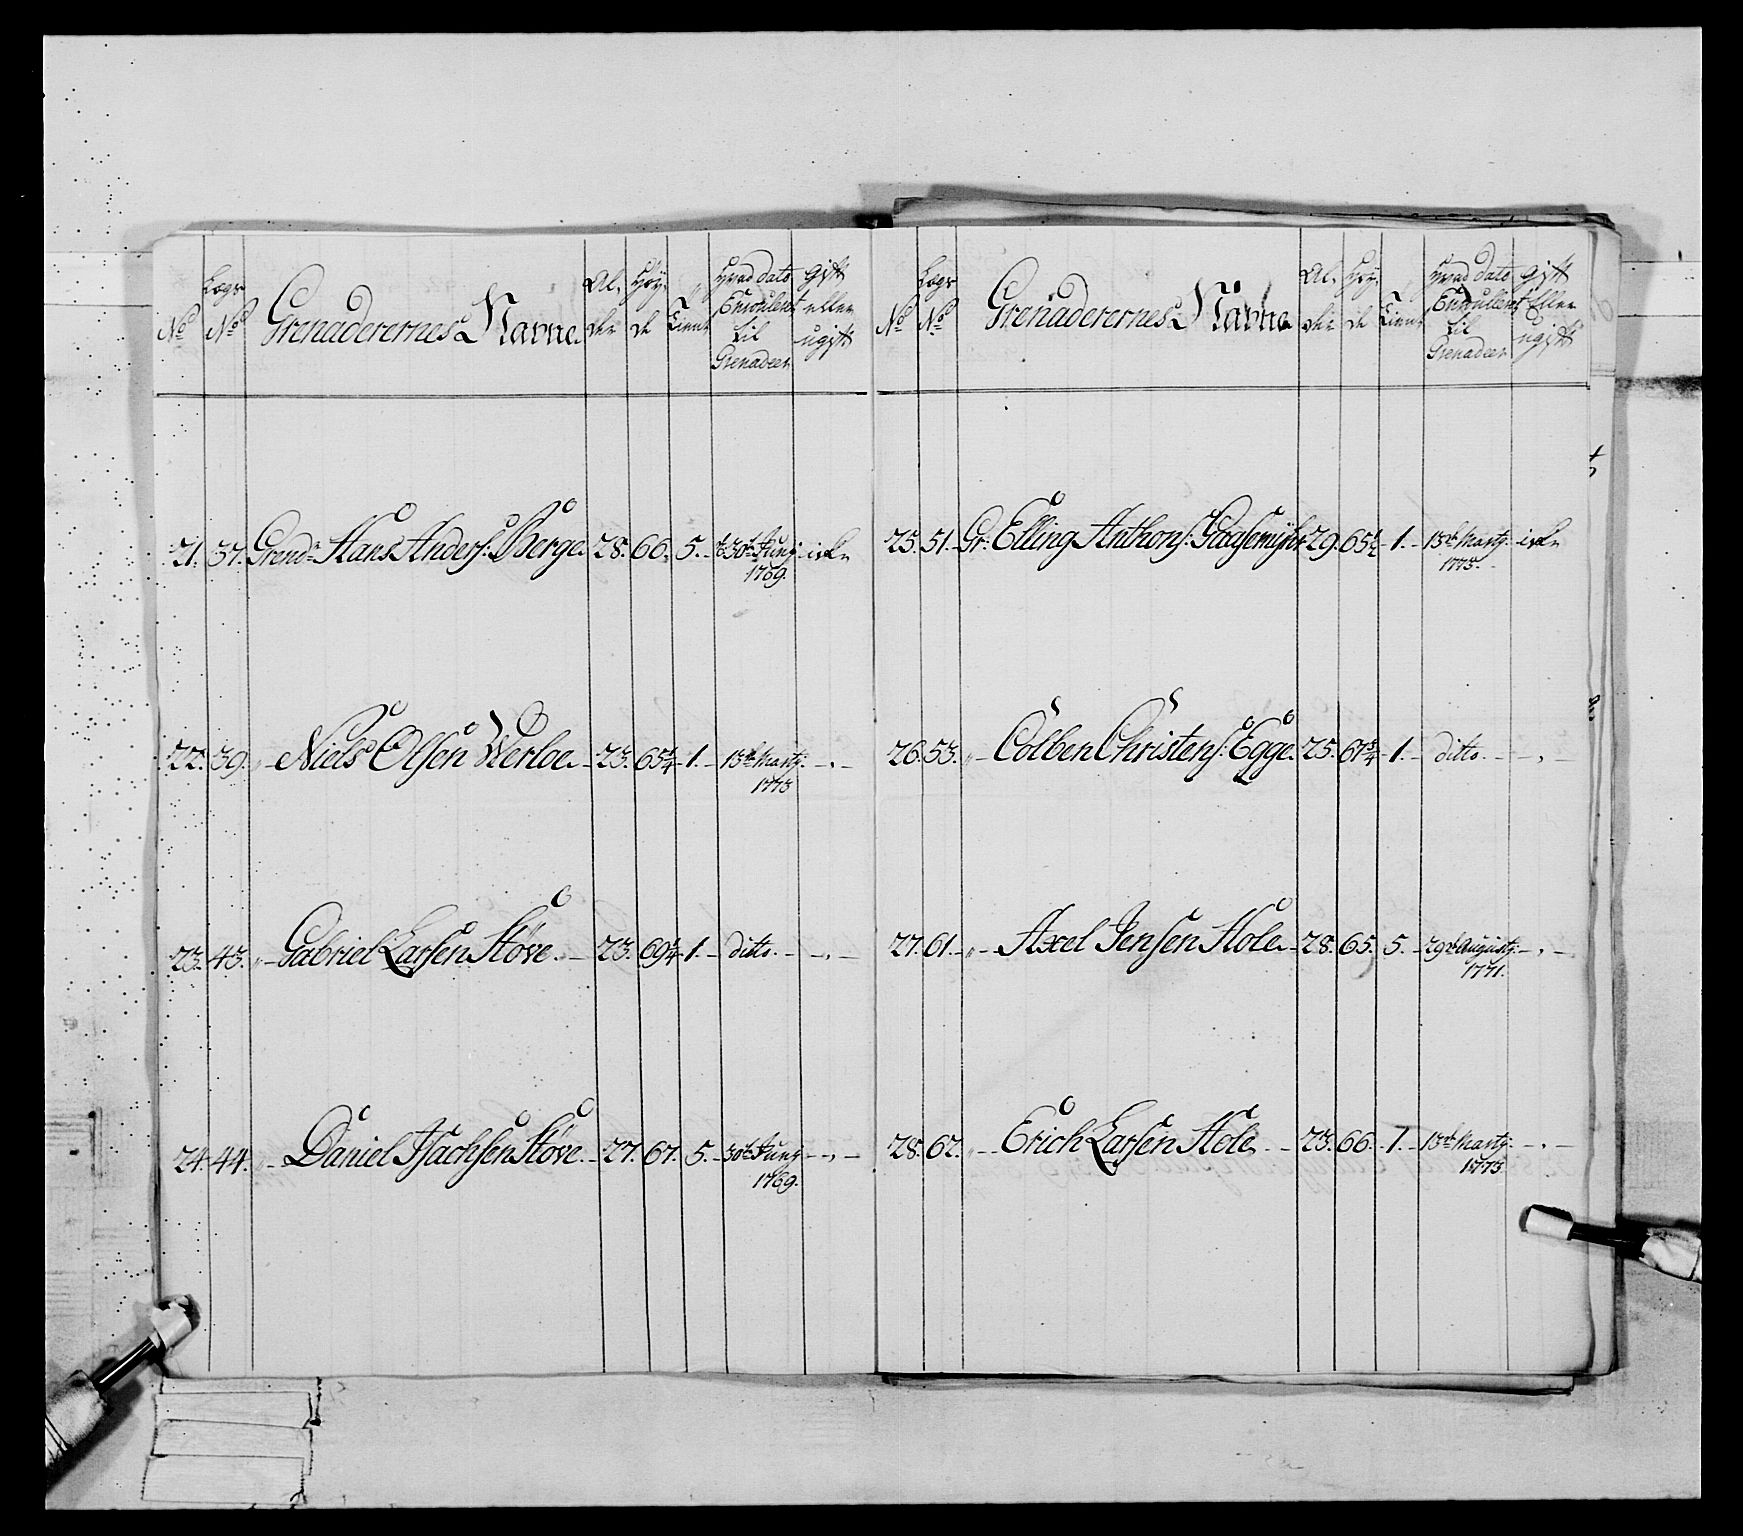 No Lægs No Grenaderernes Navne Al- der Høy- de Tient Hvad dato Enroulert til Grenadeer Gift eller ugift
21. 37. Grendr Hans Anders: Berge 28. 66. 5. d 30te Juny 1769. icke
22. 39. " Niels Olsen Werloe 23. 65 1/4 1. 13de Marty 1773 "
23. 43. " Gabriel Larsen Støve 23. 69 3/4 1. ditto "
24. 44. " Daniel Isachsen Støve 27. 67. 5. 30te Juny 1769. "
No Lægs No Grenaderernes Navne Al- der Høy- de Tient Hvad dato Enroulert til Grenadeer Gift Eller ugift
25. 51. Gr: Elling Anthons: 29. 65 1/2 1. 13de Marty 1773. icke
26. 53. " Colben Christens: Egge 25. 67 3/4 1. ditto "
27. 61. " Axel Jensen Hole 28. 65. 5. 29de Augusty 1771. "
28. 62. " Erich Larsen Hole 23. 66. 1. 13de Marty 1773. "